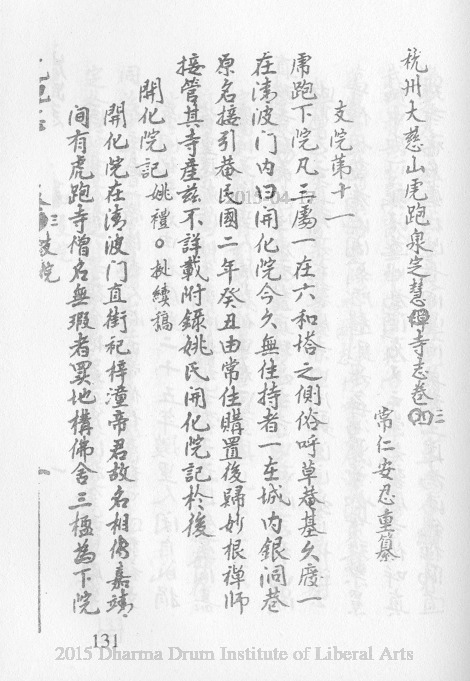 杭州大慈山虎跑泉定慧禪寺志卷三
常仁安忍重纂
支院第十一
虎跑下院凡三屬一在六和塔之側俗呼草菴基久廢一
在清波门內曰開化院今久無住持者一在城內銀洞巷
原名接引菴民國二年癸丑由常住購置後歸妙根禪師
接管其寺產茲不詳載附錄姚氏開化院記於後
開化院記 姚禮。 續稿
開化院在清波门直街祀梓潼帝君故名相傳嘉靖
間有虎跑寺僧名無瑕者買地構佛舍三楹為下院
三支院
131
2015-04-17
2015 Dharma Drum Institute of Liberal Arts